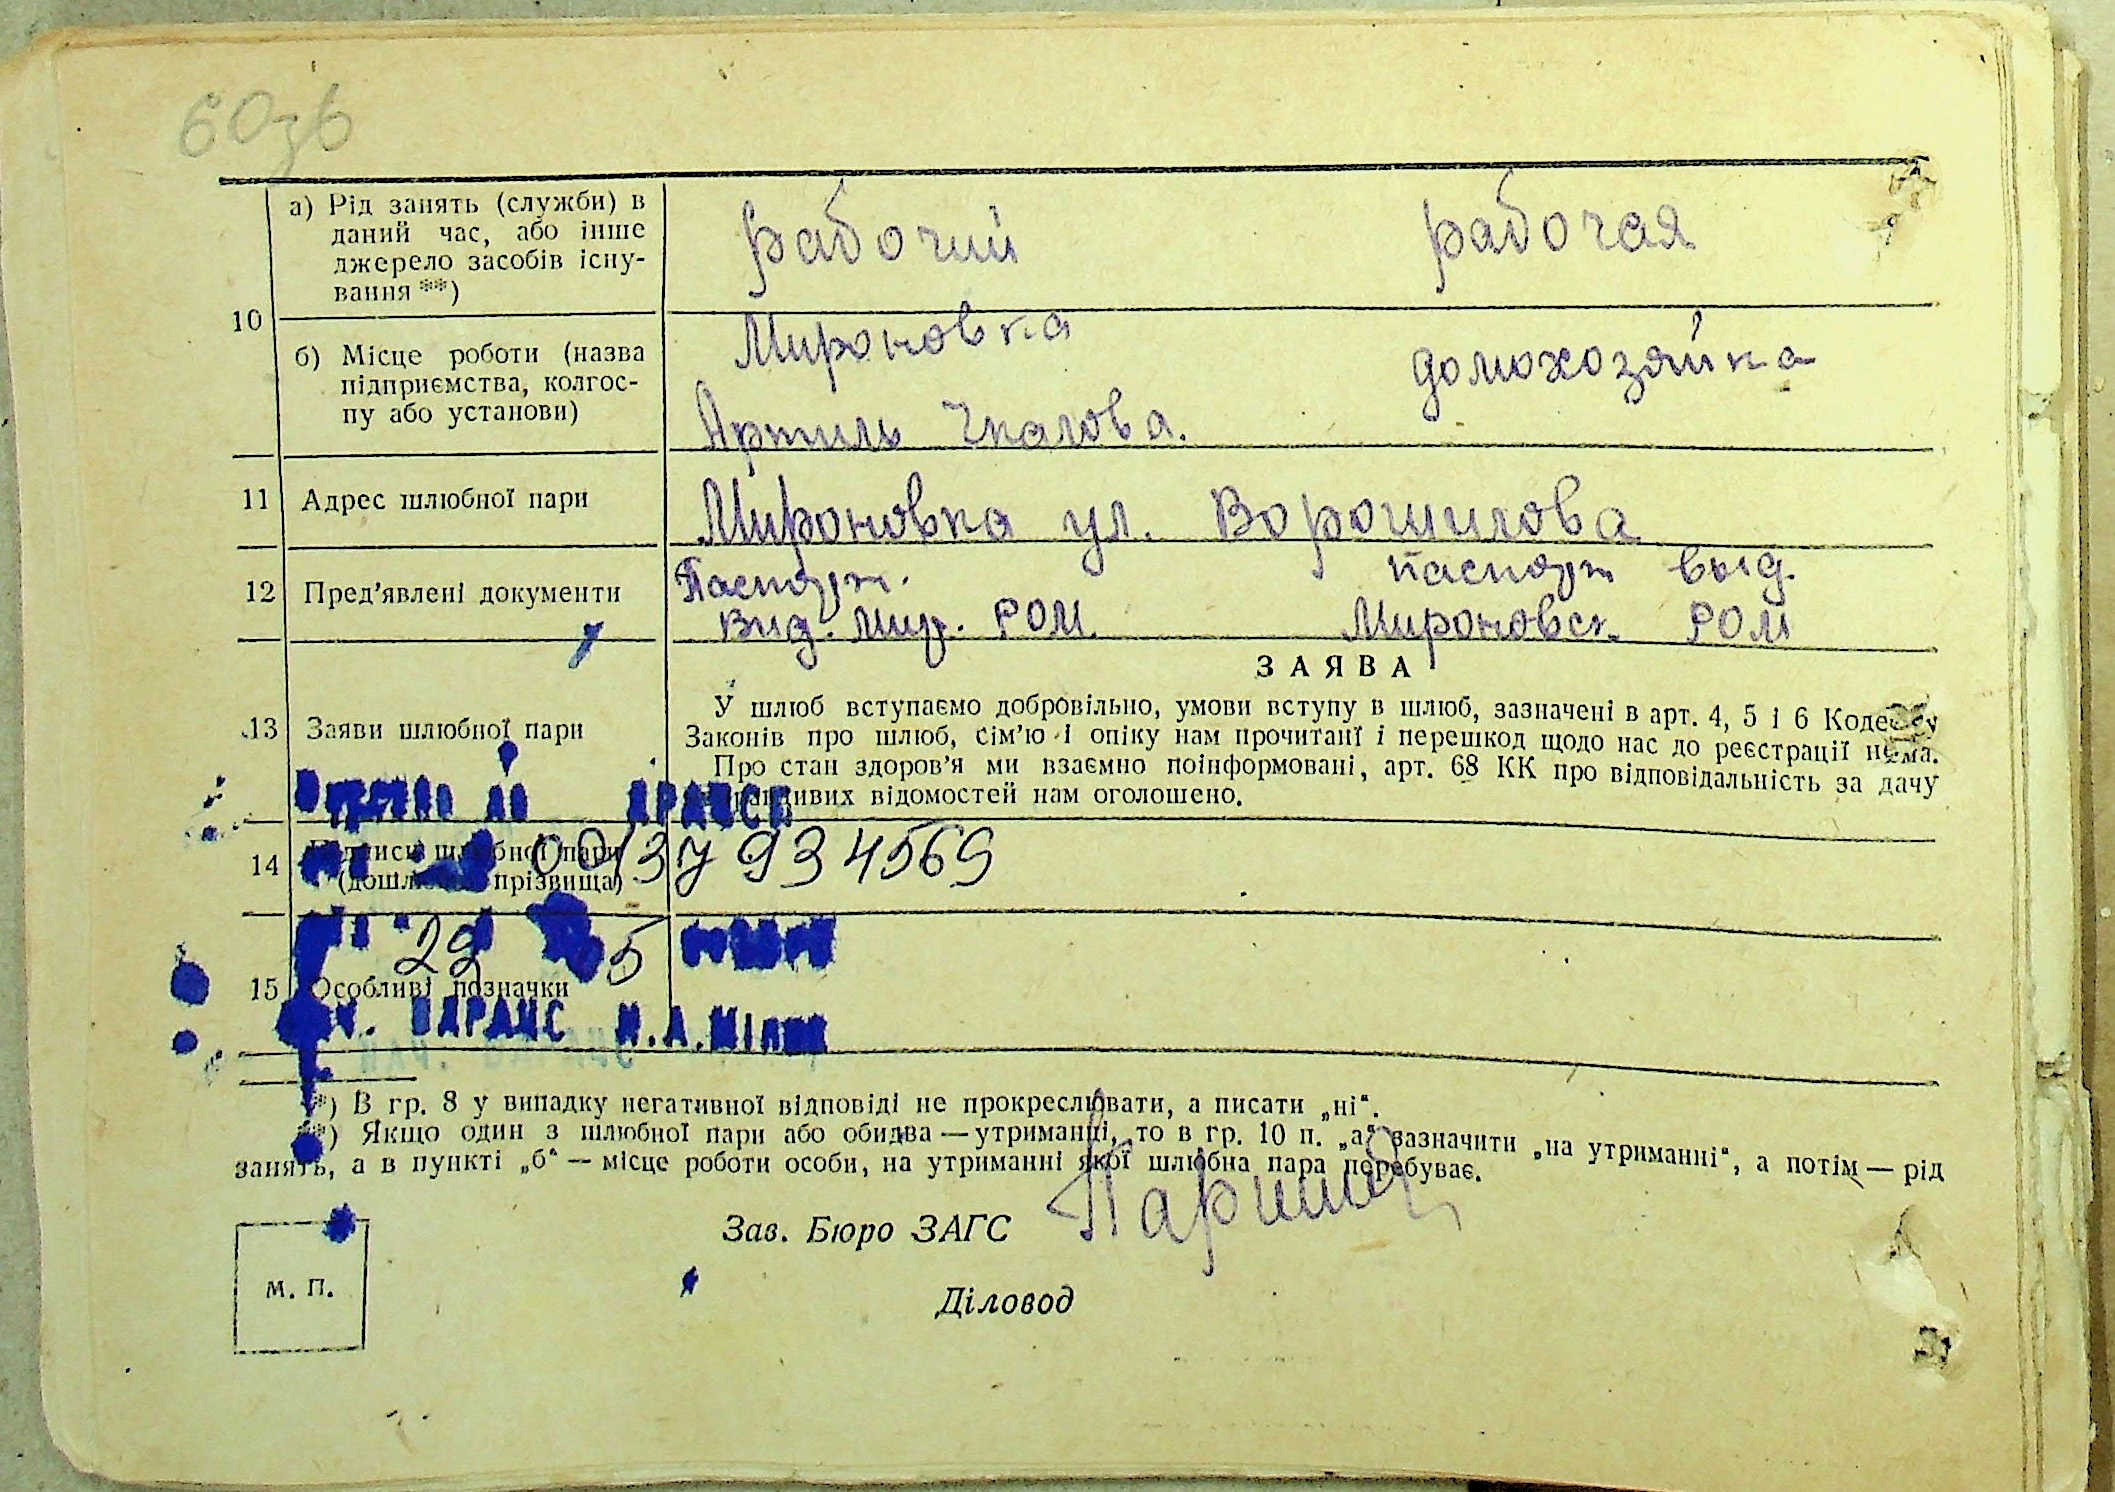 60зв
10
а) Рід занять (служби) в
даний час, або інше
джерело засобів існу-
вання **)
рабочий
рабочая
б) Місце роботи (назва
підприємства, колгос-
пу або установи)
Мироновка
Артиль Чкалова.
домохозяйка
11 Адрес шлюбної пари
Мироновка ул. Ворошилова
12 Пред'явлені документи
Паспорт.
Вид. Мир. РОМ
паспорт выд.
Мироновск. РОМ
ЗАЯВА
13 Заяви шлюбної пари
У шлюб вступаємо добровільно, умови вступу в шлюб, зазначені в арт. 4, 5 і 6 Кодексу
Законів про шлюб, сім'ю і опіку нам прочитані і перешкод щодо нас до реєстрації нема.
Про стан здоров'я ми взаємно поінформовані, арт. 68 КК про відповідальність за дачу
неправдивих відомостей нам оголошено.
14 Підписи шлюбної пари
(дошлюбні прізвища)
00137934569
29 5
15 Особливі позначки
Н.А.
*) В гр. 8 у випадку негативної відповіді не прокреслювати, а писати „ні“.
**) Якщо один з шлюбної пари або обидва — утриманці, то в гр. 10 п. „а“ зазначити „на утриманні“, а потім — рід
занять, а в пункті „б“ — місце роботи особи, на утриманні якої шлюбна пара перебуває.
Зав. Бюро ЗАГС
м. п.
Діловод